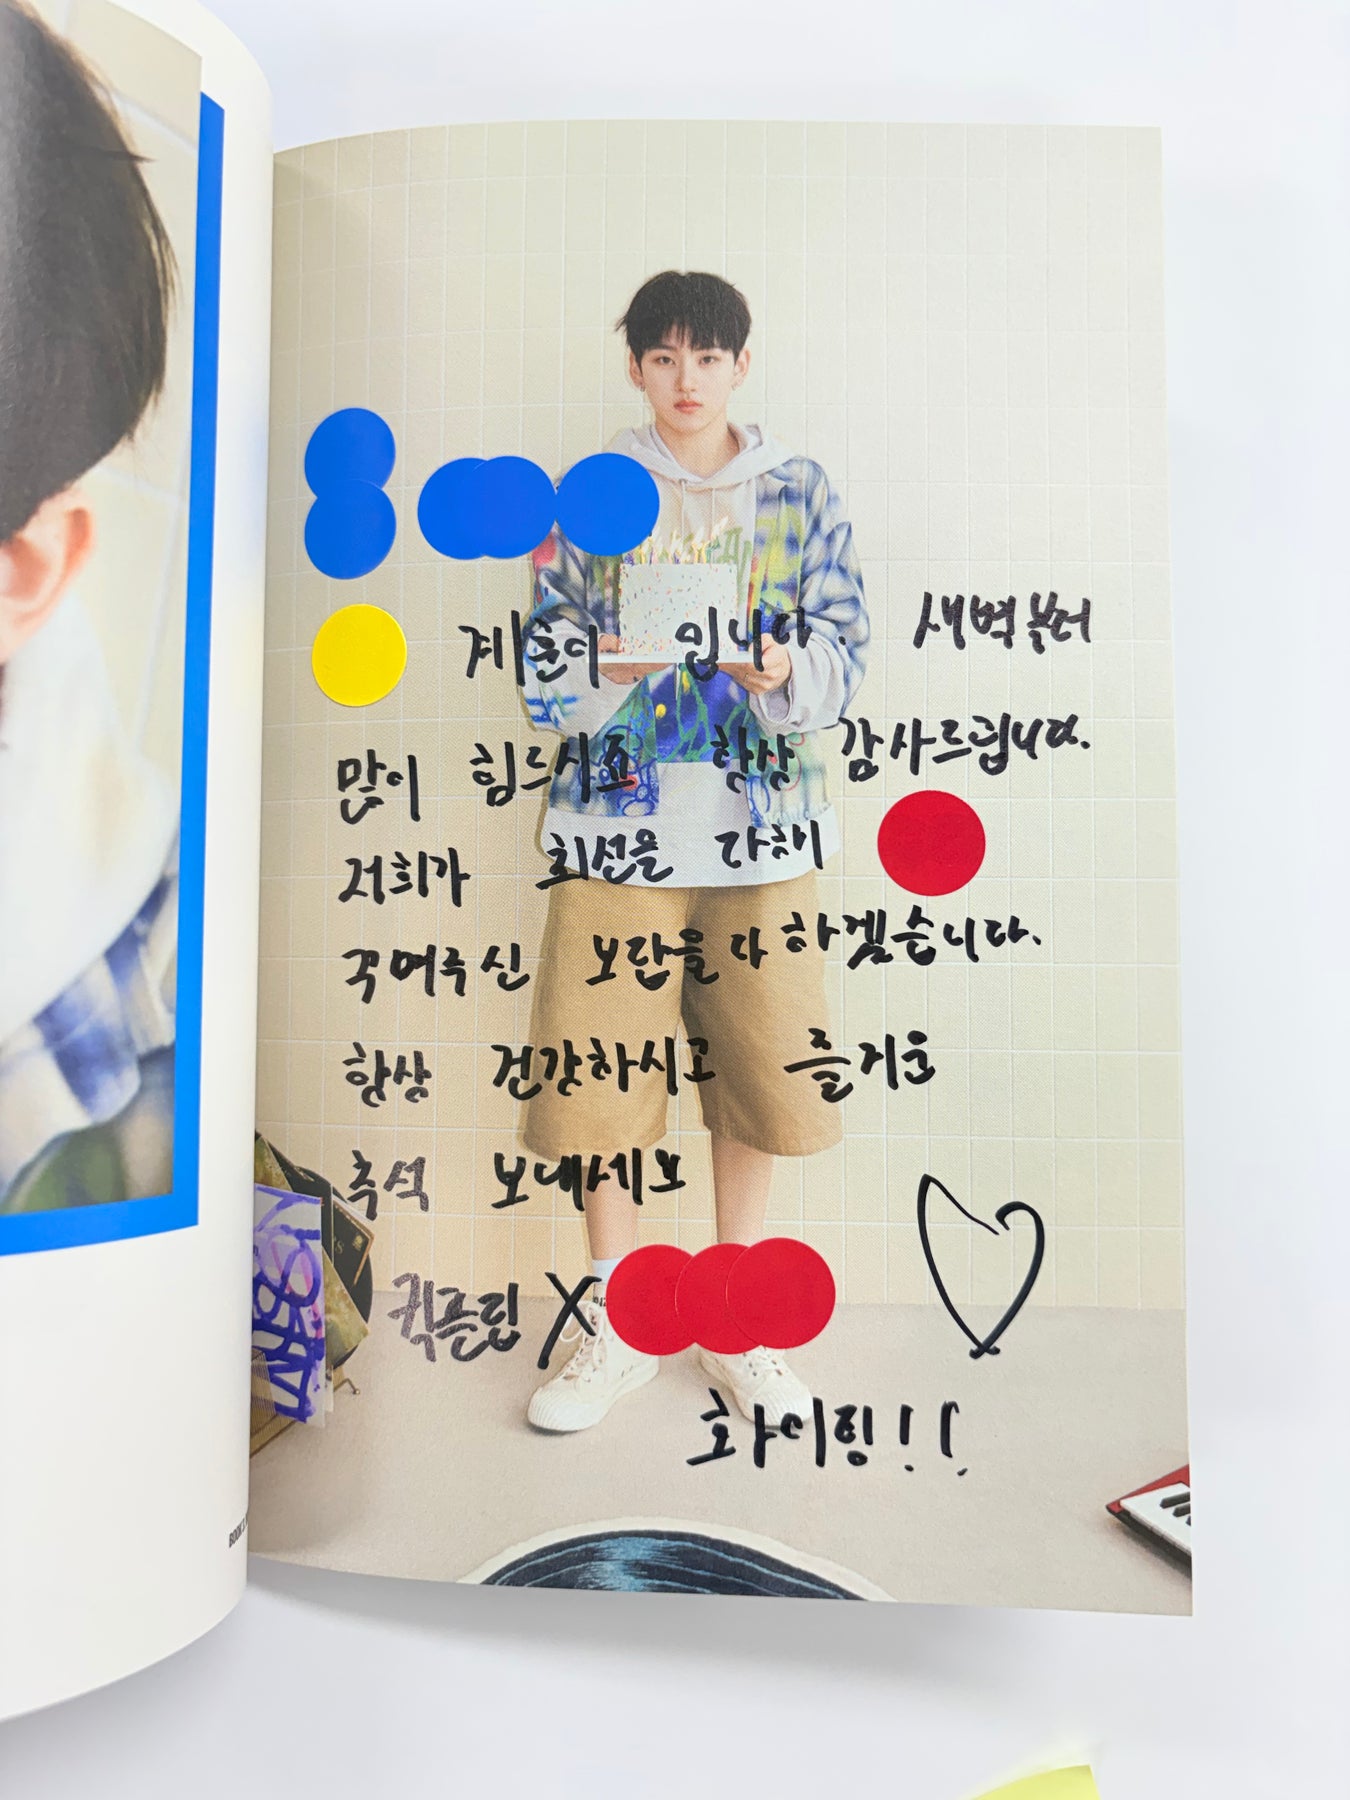 계훈이 입니다. 새벽 부터
많이 힘드시죠 항상 감사드립니다.
저희가 최선을 다해
꾸며주신 보란을 다 하겠습니다.
항상 건강하시고 즐거운
추석 보내세요
킥플립 X
화이팅!!
BOOK